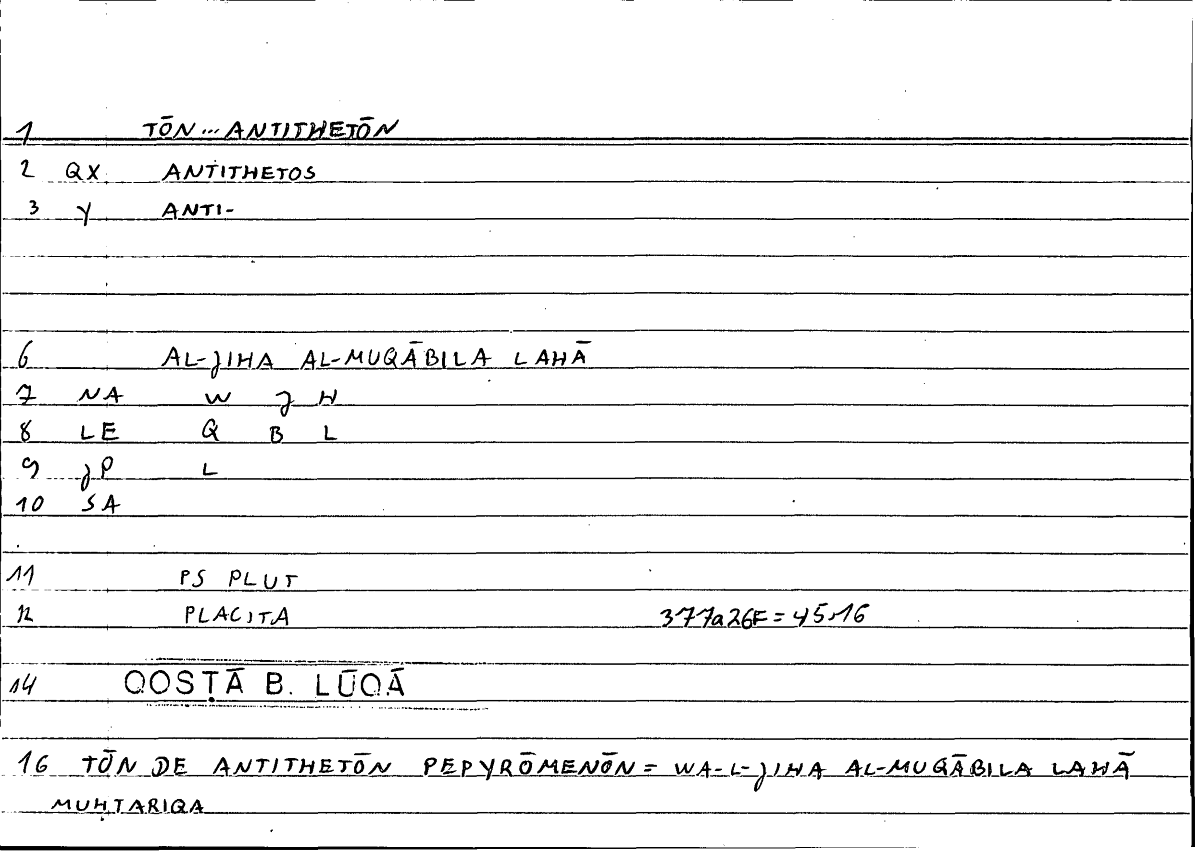 1 TŌN... ANTITHETŌN
2 QX ANTITHETOS
3 Y ANTI-
6 AL-JIHA AL-MUQĀBILA LAHĀ
7 NA W J H
8 LE Q B L
9 JP L
10 SA
11 PS PLUT
12 PLACITA 377a26F=45,16
14 QOSṬĀ B. LŪQĀ
16 TŌN DE ANTITHETŌN PEPYRŌMENŌN = WA-L-JIHA AL-MUQĀBILA LAHĀ
MUḤTARIQA